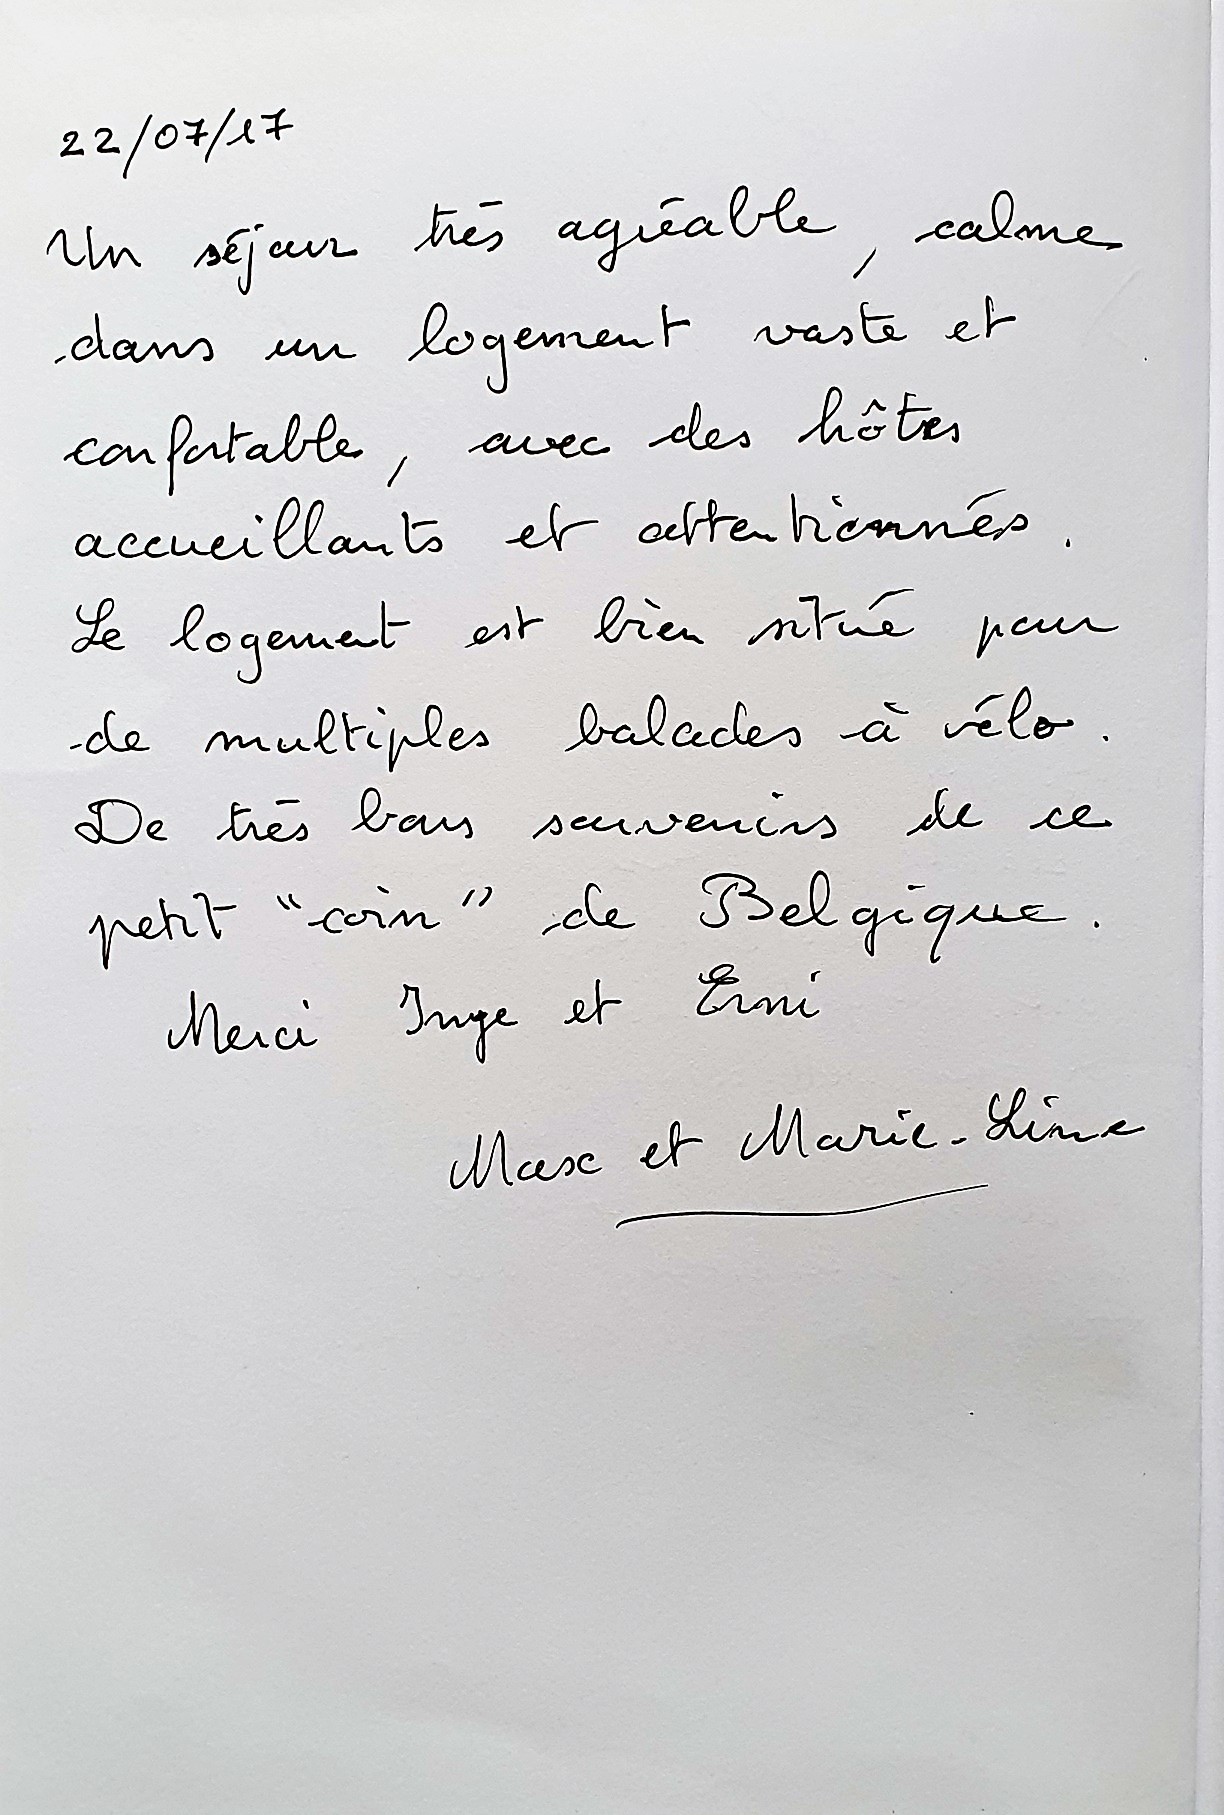 22/07/17
Un séjour très agréable, calme
dans un logement vaste et
confortable, avec des hôtes
accueillants et attentionnés.
Le logement est bien situé pour
de multiples balades à vélo.
De très bons souvenirs de ce
petit "coin" de Belgique.
Merci Inge et Erni
Max et Marie-Line